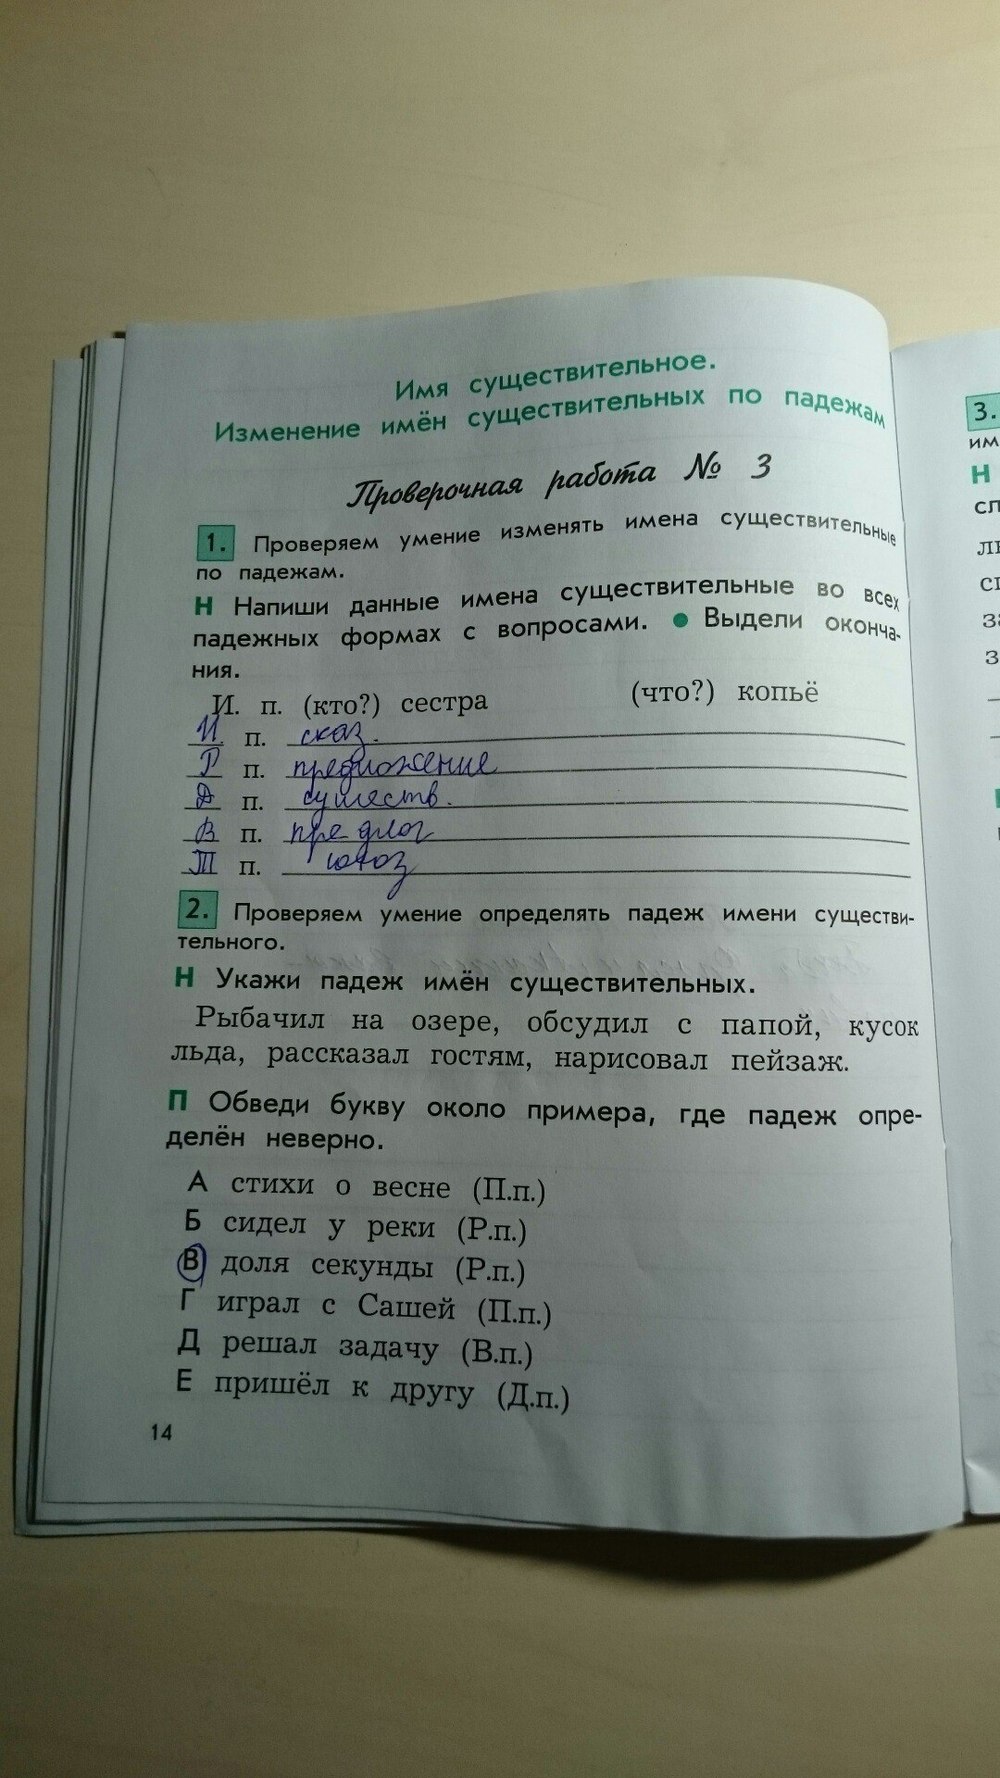 Имя существительное.
Изменение имён существительных по падежам
Проверочная работа № 3
1. Проверяем умение изменять имена существительные
по падежам.
Н Напиши данные имена существительные во всех
падежных формах с вопросами. ● Выдели оконча-
ния.
И. п. (кто?) сестра (что?) копьё
И п. сказ.
Р п. предложение
Д п. существ.
В п. предлог
Т п. союз
2. Проверяем умение определять падеж имени существи-
тельного.
Н Укажи падеж имён существительных.
Рыбачил на озере, обсудил с папой, кусок
льда, рассказал гостям, нарисовал пейзаж.
П Обведи букву около примера, где падеж опре-
делён неверно.
А стихи о весне (П.п.)
Б сидел у реки (Р.п.)
В доля секунды (Р.п.)
Г играл с Сашей (П.п.)
Д решал задачу (В.п.)
Е пришёл к другу (Д.п.)
14
3.
им
Н
сл